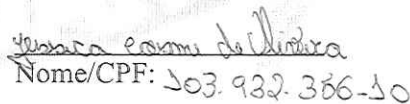 Jessica Cosme de Oliveira
Nome/CPF: 103.932.366-10